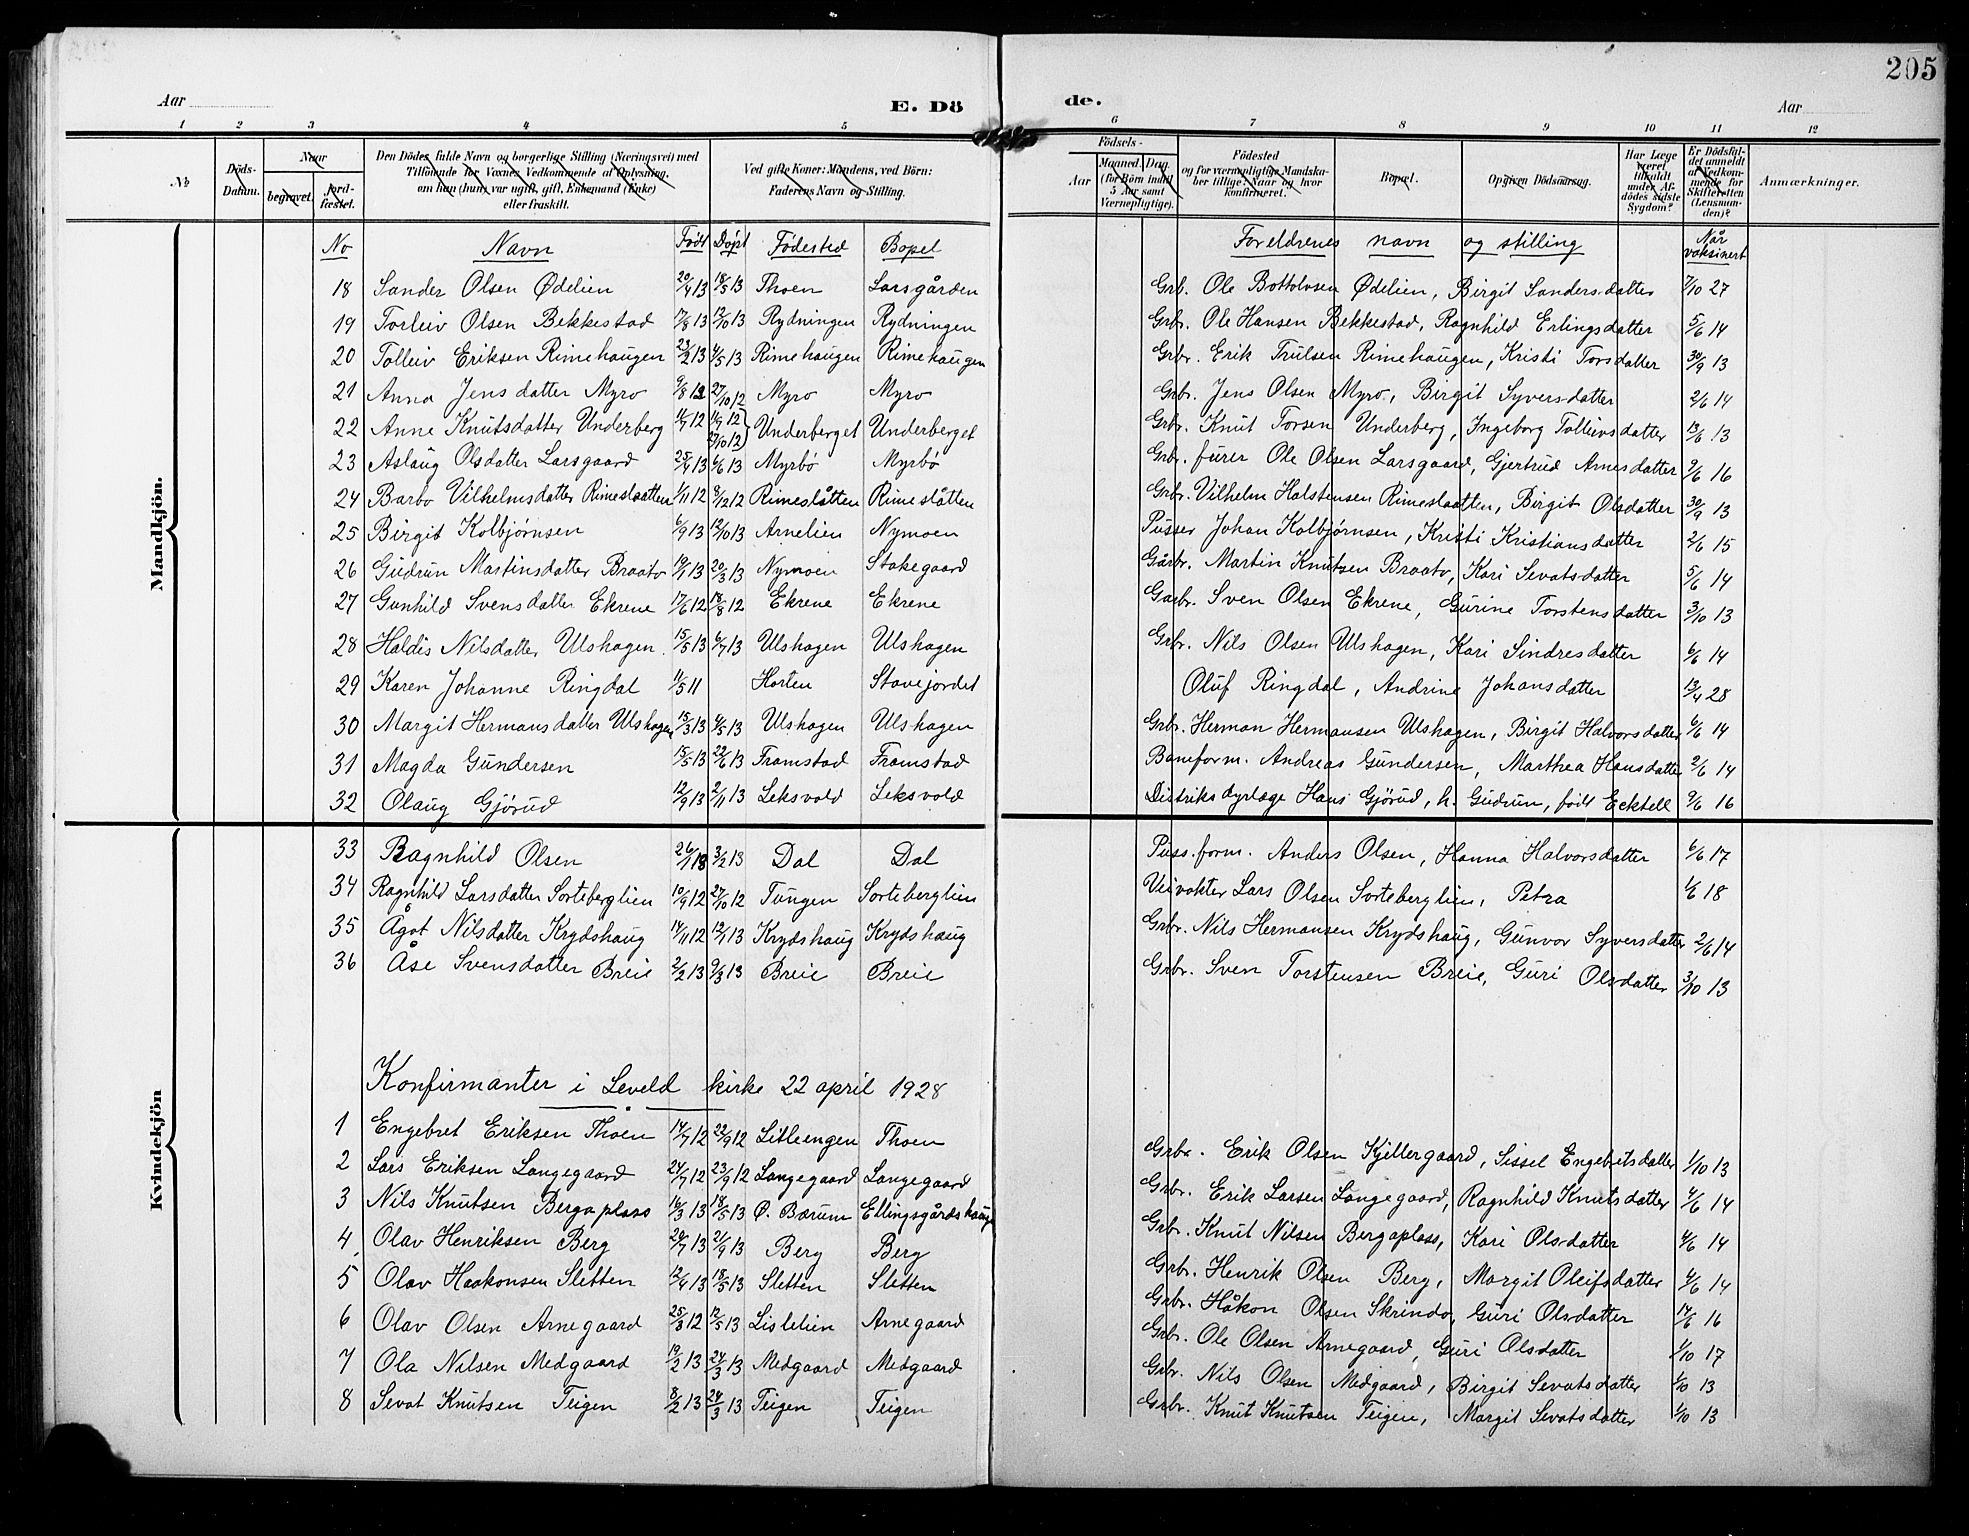 205
Aar E. Dö de. Aar
1 2 3 4 5 6 7 8 9 10 11 12
№ Döds-Datum. Naar begravet. Jordfæstet. Den Dödes fulde Navn og borgerlige Stilling (Næringsvei) med Tilföiende for Voxnes Vedkommende af Oplysning, om han (hun) var ugift, gift, Enkemand (Enke) eller fraskilt. Ved gifte Koner: Mandens, ved Börn: Faderens Navn og Stilling. Födsels- Aar Maaned. Dag. (for Börn indtil 5 Aar samt Værnepligtige). Födested og for værnepligtige Mandskaber tillige: Naar og hvor konfirmeret. Bopæl. Opgiven Dödsaarsag. Har Læge været tilkaldt under Afdödes sidste Sygdom? Er Dödsfaldet anmeldt af Vedkommende for Skifteretten (Lensmanden)? Anmærkninger.
Mandkjön.
No Navn Født Døpt Fødested Bopel Foreldrenes navn og stilling Når vaksinert
18 Sander Olsen Ødelien 20/4 13 18/5 13 Thoen Larsgården Grb. Ole Bottolvsen Ødelien, Birgit Sandersdatter 7/10 27
19 Torleiv Olsen Bekkestad 17/8 13 12/10 13 Rydningen Rydningen Grb. Ole Hansen Bekkestad, Ragnhild Erlingsdatter 5/6 14
20 Tolleiv Eriksen Rimehaugen 23/2 13 4/5 13 Rimehaugen Rimehaugen Grbr. Erik Trulsen Rimehaugen, Kristi Torsdatter 30/9 13
21 Anna Jensdatter Myro 9/8 12 27/10 12 Myro Myro Grb. Jens Olsen Myro, Birgit Syversdatter 2/6 14
22 Anne Knutsdatter Underberg 11/7 12 11/7 12 27/10 12 Underberget Underberget Grb. Knut Torsen Underberg, Ingeborg Tolleivsdatter 13/6 13
23 Aslaug Olsdatter Larsgaard 25/4 13 6/6 13 Myrbø Myrbø Grb. fürer Ole Olsen Larsgaard, Gjertrud Arnesdatter 9/6 16
24 Barbo Vilhelmsdatter Rimeslaatten 1/11 12 8/12 12 Rimeslåtten Rimeslåtten Grb. Vilhelm Halstensen Rimeslaatten, Birgit Olsdatter 30/9 13
25 Birgit Kolbjørnsen 6/9 13 12/10 13 Arnelien Nymoen Pusser Johan Kolbjørnsen, Kristi Kristiansdatter 2/6 15
26 Gudrun Martinsdatter Braato 19/1 13 20/3 13 Nymoen Stakegaard Gårbr. Martin Knutsen Braato, Kari Sevatsdatter 5/6 14
27 Gunhild Svensdatter Ekrene 17/6 12 18/8 12 Ekrene Ekrene Garbr. Sven Olsen Ekrene, Gurine Torstensdatter 3/10 13
28 Haldis Nilsdatter Ulshagen 15/5 13 6/7 13 Ulshagen Ulshagen Grbr. Nils Olsen Ulshagen, Kari Sindresdatter 6/6 14
29 Karen Johanne Ringdal 11/5 11 Horten Stavejordet Oluf Ringdal, Andrine Johansdatter 13/4 28
30 Margit Hermansdatter Ulshagen 15/3 13 4/5 13 Ulshagen Ulshagen Grbr. Herman Hermansen Ulshagen, Birgit Halvorsdatter 6/6 14
31 Magda Gundersen 15/5 13 22/6 13 Framstad Framstad Baneform. Andreas Gundersen, Marthea Hansdatter 2/6 14
32 Olaug Gjørud 12/9 13 2/11 13 Leksvold Leksvold Distriksdyrlæge Hans Gjørud, h. Gudrun, født Ecktell 9/6 16
Kvindekjön
33 Ragnhild Olsen 26/1 13 3/2 13 Dal Dal Puss.form. Anders Olsen, Hanna Halvorsdatter 6/6 17
34 Ragnhild Larsdatter Sorteberglien 10/9 12 27/10 12 Tungen Sorteberglien Veivokter Lars Olsen Sorteberglien, Petra 1/6 18
35 Ågot Nilsdatter Krydshaug 14/11 12 12/1 13 Krydshaug Krydshaug Grbr. Nils Hermansen Krydshaug, Gunvor Syversdatter 2/6 14
36 Åse Svensdatter Breie 2/2 13 9/3 13 Breie Breie Grbr. Sven Torstensen Breie, Guri Olsdatter 3/10 13
Konfirmanter i Leveld kirke 22 april 1928
1 Engebret Eriksen Thoen 14/7 12 22/9 12 Litleengen Thoen Grbr. Erik Olsen Kjillergaard, Sissel Engebretsdatter 1/10 13
2 Lars Eriksen Langegaard 24/7 12 23/9 12 Langegaard Langegaard Grbr. Erik Larsen Langegaard, Ragnhild Knutsdatter 4/6 14
3 Nils Knutsen Bergaplass 16/3 13 18/5 13 Ø. Bærum Ellingsgårdshaug Grbr. Knut Nilsen Bergaplass, Kari Olsdatter 4/6 14
4 Olav Henriksen Berg 20/7 13 21/9 13 Berg Berg Grb. Henrik Olsen Berg, Margit Oleifsdatter 4/6 14
5 Olav Haakonsen Sletten 12/4 13 18/5 13 Sletten Sletten Grbr. Håkon Olsen Skrindo, Guri Olsdatter 14/6 16
6 Olav Olsen Arnegaard 25/8 12 12/5 13 Lislelien Arnegaard Grb. Ole Olsen Arnegaard, Guri Olsdatter 1/10 17
7 Ola Nilsen Medgaard 19/2 13 24/3 13 Medgaard Medgaard Gbr. Nils Olsen Medgaard, Birgit Sevatsdatter 1/10 13
8 Sevat Knutsen Teigen 8/2 13 24/3 13 Teigen Teigen Grbr. Knut Knutsen Teigen, Margit Sevatsdatter 1/10 13